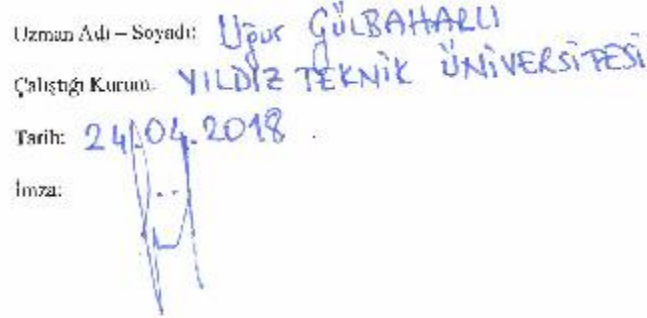 Uzman Adı – Soyadı: Uğur GÜLBAHARLI
Çalıştığı Kurum: YILDIZ TEKNİK ÜNİVERSİTESİ
Tarih: 24.04.2018
İmza: